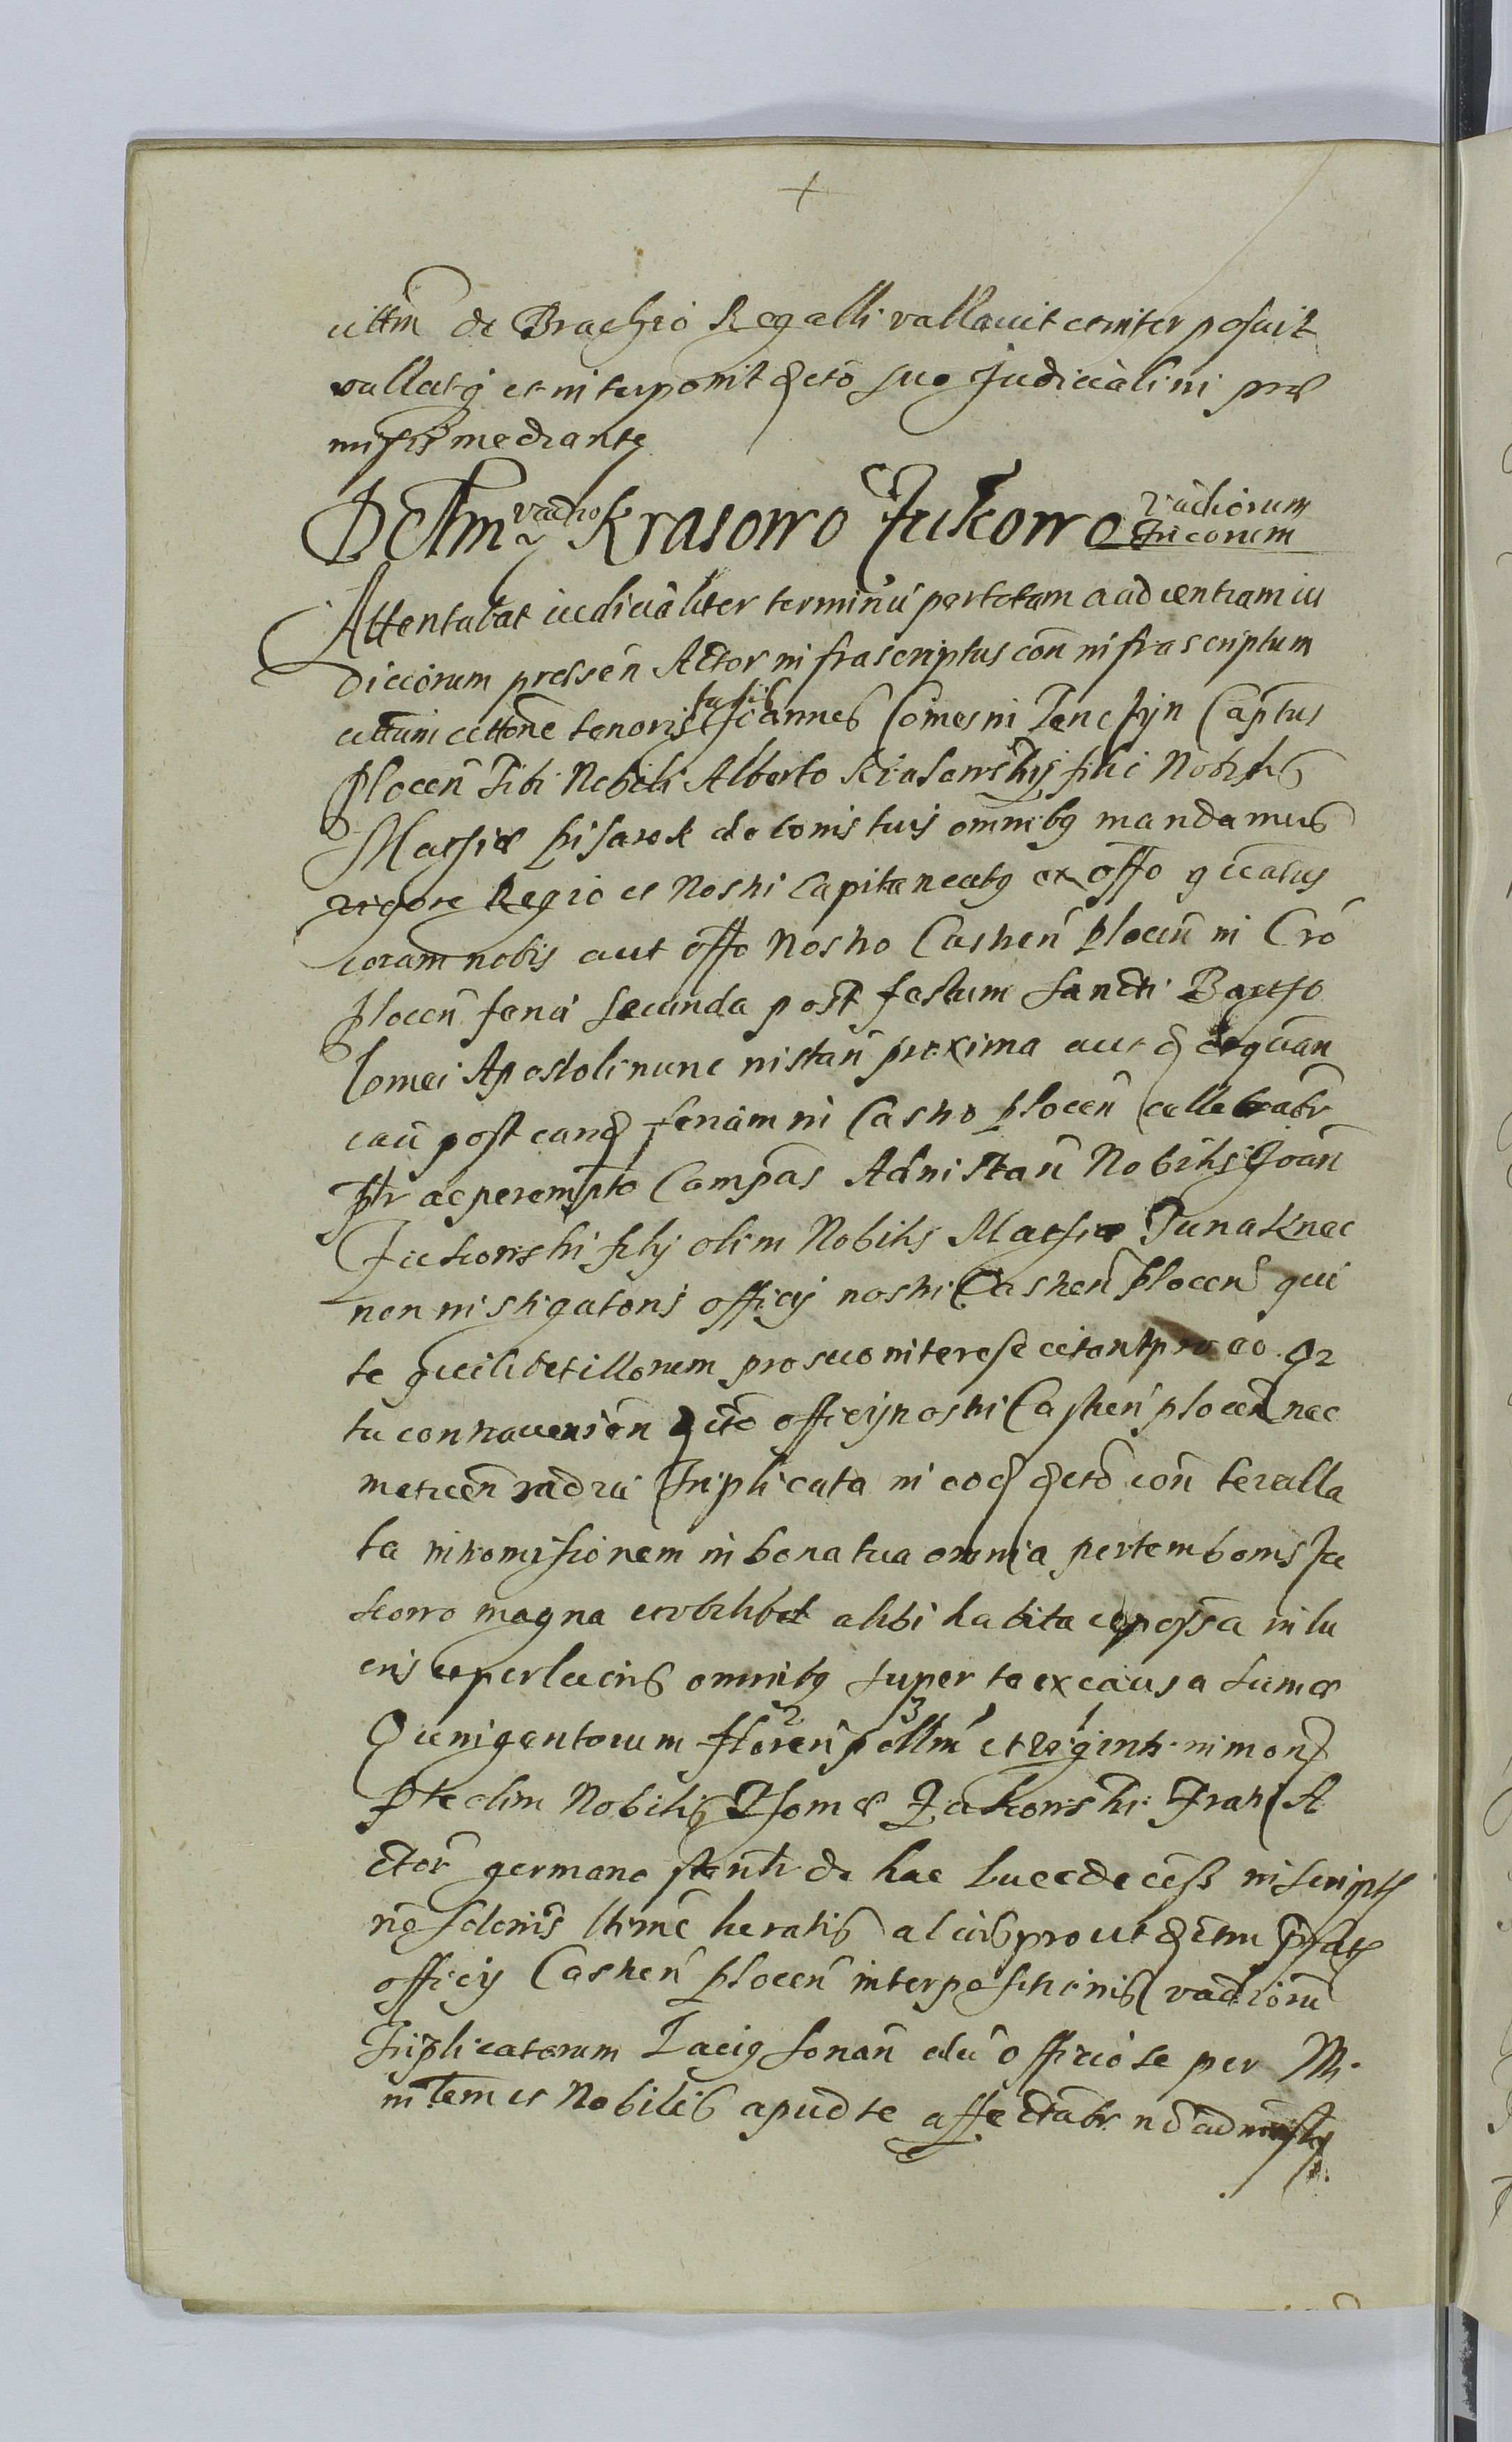 cittm de Brachio Regalli vallavit et interposuit
vallatq et interponit dcto suo Judiciali in prae
missis mediante
Dctm vadior Krasowo Jukowo vadiorum
Tricorum
Attentabat iudicialiter terminu per totam audientiam iu
diciorum presen Actor infrascriptus con infrascriptum
cittum cittone tenoris talis Joannes Comes in Tencžyn Captus
Plocen Tibi Nobili Alberto Krasowskij filii Nobilis
Mathiae Pisarek de bonis tuis omnibq mandamus
vigore Regio et Nostri Capitaneatq ex offo quatus
coram nobis aut offo Nostro Castren Plocen in Cro
Plocen feria secunda post festum Sancti Bartho
lomei Apostoli nunc instan proxima aut dc quan
cau post eand feriam in Castro Plocen cellebrabr
Ptr ac perempto Compas Ad instan Nobilis Joan
Jukowski filij olim Nobilis Mathiae Dunak nec
non instigatoris officij nostri Castren Plocen qui
te quilibet illorum pro suo interesse citant pro eo qz
tu contravenien dcto officij nostri Castren plocen nec
metuen vadia Triplicata in eod dcto con te valla
ta intromissionem in bona tua omnia pertem bonis Ju
kowo magna et vbilibet alibi habita et possa in lu
cris et perlucris omnibq super te ex causa sumae
Quingentorum floren pollm et viginti in mond
pte olim Nobilis Thomae Jukowski Fratr A
ctor germano stenti de hac luce decess inscript
ne solonis ltime heratis alcis prout dctm pfat
officij Castren plocen interpositionis vadiorum
Triplicatorum Laciq sonan du officiose per Mi
nitem et Nobiles apud te affectabr nd admisty